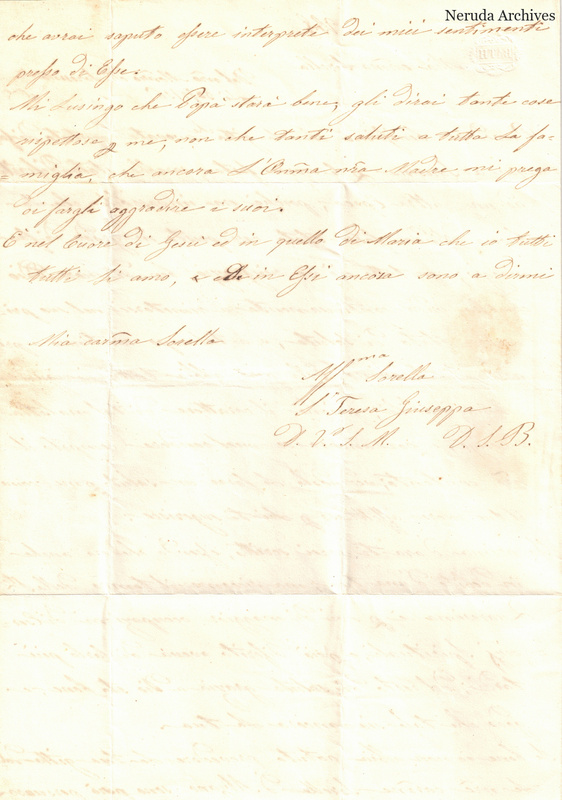 Neruda Archives
che avrai saputo essere interprete dei miei sentimenti
presso di Esse.
Mi lusingo che Papà starà bene, gli dirai tante cose
rispettose p me, non che tanti saluti a tutta la fa-
=miglia, che ancora l'Onñia nña Madre mi prega
di fargli aggradire i suoi.
È nel Cuore di Gesù ed in quello di Maria che io tutti
tutti li amo, e in Essi ancora sono a dirmi
Mia carm̃a Sorella
Affma Sorella
Sr Teresa Giuseppa
D. V. S. M. D. S. B.